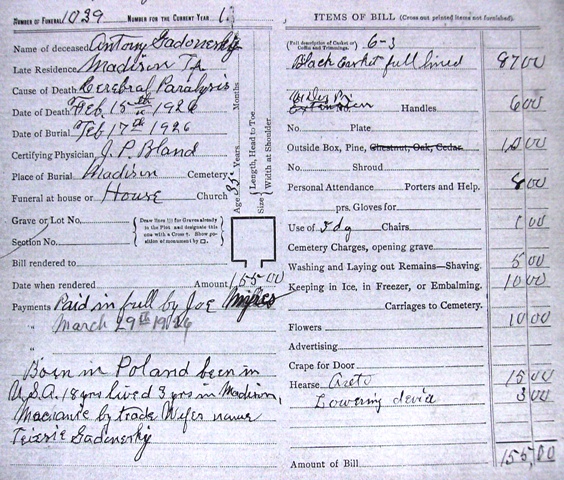 NUMBER OF FUNERAL 1039 NUMBER FOR THE CURRENT YEAR
Name of deceased Antony Gadonersky
Late Residence, Madison Tp
Cause of Death Cerebral Paralysis
Date of Death Feb. 15th 1926
Date of Burial Feb 17th 1926
Certifying Physician, J. P. Bland
Place of Burial Madison Cemetery
Funeral at house or House Church
Age 35 Years Months
Size { Length, Head to Toe
Width at Shoulder
Grave or Lot No.
Section No.
{ Draw lines for Graves already in the Plot, and designate this one with a Cross †. Show position of monument by □. }
Bill rendered to
Date when rendered Amount, 155 00
Payments Paid in full by Joe
" March 29th 1926
"
Born in Poland been in
U.S.A. 18 yrs lived 3 yrs in Madison,
by trade Wifes name
Gadonersky
ITEMS OF BILL (Cross out printed items not furnished).
(Full description of Casket or Coffin and Trimmings. 6-3
Black casket full lined 87 00
Extension Handles, 6 00
No. Plate
Outside Box, Pine, Chestnut, Oak, Cedar. 10 00
No. Shroud
Personal Attendance Porters and Help. 8 00
prs. Gloves for
Use of Fdg Chairs 1 00
Cemetery Charges, opening grave
Washing and Laying out Remains—Shaving. 5 00
Keeping in Ice, in Freezer, or Embalming. 10 00
Carriages to Cemetery.
Flowers 10 00
Advertising,
Crape for Door
Hearse Auto 15 00
Lowering devic 3 00
Amount of Bill 155,00